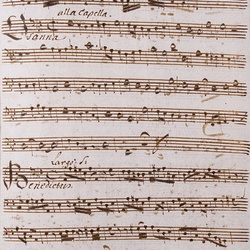 alla Capella.
Osanna
Largo.
Benedictus